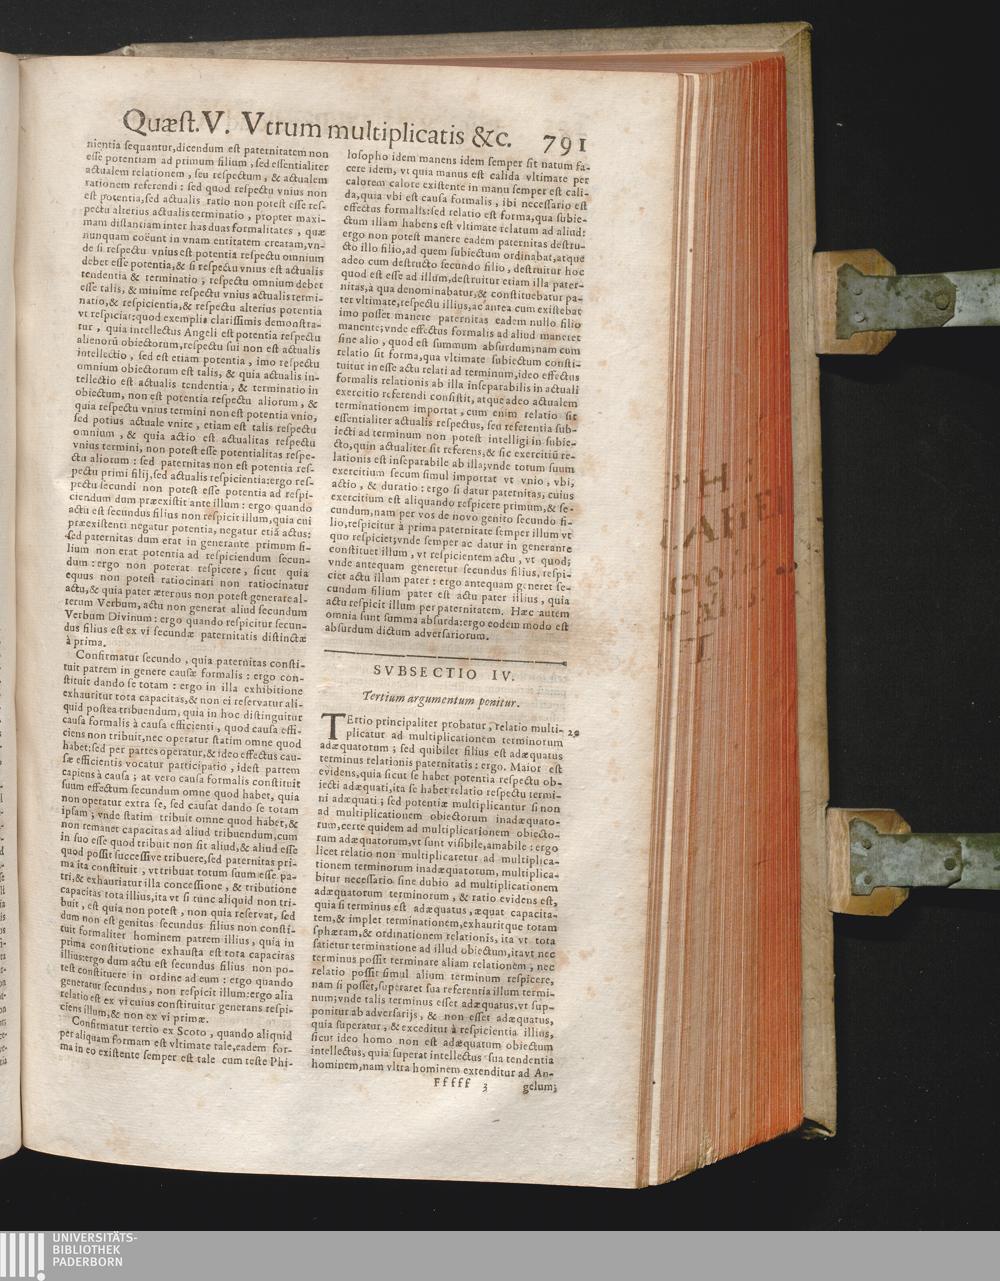 Quæſt. V. Vtrum multiplicatis &c. 791
nientia ſequantur,dicendum eſt paternitatem non
eſſe potentiam ad primum filium , ſed eſſentialiter
actualem relationem , ſeu reſpectum , & actualem
rationem referendi : ſed quod reſpectu vnius non
eſt potentia,ſed actualis ratio non poteſt eſſe reſ-
pectu alterius actualis terminatio , propter maxi-
mam diſtantiam inter has duas formalitates , quæ
nunquam coëunt in vnam entitatem creatam,vn-
de ſi reſpectu vnius eſt potentia reſpectu omnium
debet eſſe potentia,& ſi reſpectu vnius eſt actualis
tendentia & terminatio ; reſpectu omnium debet
eſſe talis, & minime reſpectu vnius actualis termi-
natio,& reſpicientia,& reſpectu alterius potentia
vt reſpiciat:quod exemplis clariſſimis demonſtra-
tur , quia intellectus Angeli eſt potentia reſpectu
alienorū obiectorum,reſpectu ſui non eſt actualis
intellectio , ſed eſt etiam potentia , imo reſpectu
omnium obiectorum eſt talis, & quia actualis in-
tellectio eſt actualis tendentia , & terminatio in
obiectum, non eſt potentia reſpectu aliorum , &
quia reſpectu vnius termini non eſt potentia vnio,
ſed potius actuale vnire , etiam eſt talis reſpectu
omnium , & quia actio eſt actualitas reſpectu
vnius termini, non poteſt eſſe potentialitas reſpe-
ctu aliorum : ſed paternitas non eſt potentia reſ-
pectu primi filij,ſed actualis reſpicientia:ergo reſ-
pectu ſecundi non poteſt eſſe potentia ad reſpi-
ciendum dum præexiſtit ante illum : ergo quando
actu eſt ſecundus filius non reſpicit illum,quia cui
præexiſtenti negatur potentia, negatur etiā actus:
ſed paternitas dum erat in generante primum fi-
lium non erat potentia ad reſpiciendum ſecun-
dum : ergo non poterat reſpicere , ſicut quia
equus non poteſt ratiocinari non ratiocinatur
actu,& quia pater æternus non poteſt generare al-
terum Verbum, actu non generat aliud ſecundum
Verbum Divinum : ergo quando reſpicitur ſecun-
dus filius eſt ex vi ſecundæ paternitatis diſtinctæ
à prima.
Confirmatur ſecundo , quia paternitas conſti-
tuit patrem in genere cauſæ formalis : ergo con-
ſtituit dando ſe totam : ergo in illa exhibitione
exhauritur tota capacitas,& non ei reſervatur ali-
quid poſtea tribuendum, quia in hoc diſtinguitur
cauſa formalis à cauſa efficienti , quod cauſa effi-
ciens non tribuit,nec operatur ſtatim omne quod
habet:ſed per partes operatur,& ideo effectus cau-
ſæ efficientis vocatur participatio , ideſt partem
capiens à cauſa ; at vero cauſa formalis conſtituit
ſuum effectum ſecundum omne quod habet, quia
non operatur extra ſe, ſed cauſat dando ſe totam
ipſam ; vnde ſtatim tribuit omne quod habet,&
non remanet capacitas ad aliud tribuendum,cum
in ſuo eſſe quod tribuit non ſit aliud,& aliud eſſe
quod poſſit ſucceſſive tribuere,ſed paternitas pri-
ma ita conſtituit , vt tribuat totum ſuum eſſe pa-
tri,& exhauriatur illa conceſſione , & tributione
capacitas tota illius,ita vt ſi tunc aliquid non tri-
buit , eſt quia non poteſt , non quia reſervat, ſed
dum non eſt genitus ſecundus filius non conſti-
tuit formaliter hominem patrem illius , quia in
prima conſtitutione exhauſta eſt tota capacitas
illius:ergo dum actu eſt ſecundus filius non po-
teſt conſtituere in ordine ad eum : ergo quando
generatur ſecundus , non reſpicit illum:ergo alia
relatio eſt ex vi cuius conſtituitur generans reſpi-
ciens illum,& non ex vi primæ.
Confirmatur tertio ex Scoto , quando aliquid
per aliquam formam eſt vltimate tale,eadem for-
ma in eo exiſtente ſemper eſt tale cum teſte Phi-
loſopho idem manens idem ſemper ſit natum fa-
cere idem, vt quia manus eſt calida vltimate per
calorem calore exiſtente in manu ſemper eſt cali-
da,quia vbi eſt cauſa formalis , ibi neceſſario eſt
effectus formalis:ſed relatio eſt forma,qua ſubie-
ctum illam habens eſt vltimate relatum ad aliud:
ergo non poteſt manere eadem paternitas deſtru-
cto illo filio,ad quem ſubiectum ordinabat,atque
adeo cum deſtructo ſecundo filio , deſtruitur hoc
quod eſt eſſe ad illum,deſtruitur etiam illa pater-
nitas,à qua denominabatur,& conſtituebatur pa-
ter vltimate,reſpectu illius,ac antea cum exiſtebat
imo poſſet manere paternitas eadem nullo filio
manente;vnde effectus formalis ad aliud maneret
ſine alio , quod eſt ſummum abſurdum;nam cum
relatio ſit forma,qua vltimate ſubiectum conſti-
tuitur in eſſe actu relati ad terminum,ideo effectus
formalis relationis ab illa inſeparabilis in actuali
exercitio referendi conſiſtit, atque adeo actualem
terminationem importat , cum enim relatio ſit
eſſentialiter actualis reſpectus, ſeu referentia ſub-
iecti ad terminum non poteſt intelligi in ſubie-
cto,quin actualiter ſit referens,& ſic exercitiū re-
lationis eſt inſeparabile ab illa;vnde totum ſuum
exercitium ſecum ſimul importat vt vnio , vbi,
actio , & duratio : ergo ſi datur paternitas, cuius
exercitium eſt aliquando reſpicere primum,& ſe-
cundum,nam per vos de novo genito ſecundo fi-
lio,reſpicitur à prima paternitate ſemper illum vt
quo reſpiciet;vnde ſemper ac datur in generante
conſtituet illum , vt reſpicientem actu , vt quod;
vnde antequam generetur ſecundus filius, reſpi-
ciet actu illum pater : ergo antequam generet ſe-
cundum filium pater eſt actu pater illius , quia
actu reſpicit illum per paternitatem. Hæc autem
omnia ſunt ſumma abſurda:ergo eodem modo eſt
abſurdum dictum adverſariorum.
SVBSECTIO IV.
Tertium argumentum ponitur.
TErtio principaliter probatur , relatio multi- 20
plicatur ad multiplicationem terminorum
adæquatorum ; ſed quibilet filius eſt adæquatus
terminus relationis paternitatis : ergo. Maior eſt
evidens,quia ſicut ſe habet potentia reſpectu ob-
iecti adæquati,ita ſe habet relatio reſpectu termi-
ni adæquati ; ſed potentiæ multiplicantur ſi non
ad multiplicationem obiectorum inadæquato-
rum,certe quidem ad multiplicationem obiecto-
rum adæquatorum,vt ſunt viſibile,amabile : ergo
licet relatio non multiplicaretur ad multiplica-
tionem terminorum inadæquatorum, multiplica-
bitur neceſſario ſine dubio ad multiplicationem
adæquatorum terminorum , & ratio evidens eſt,
quia ſi terminus eſt adæquatus , æquat capacita-
tem,& implet terminationem,exhauritque totam
ſphæram,& ordinationem relationis, ita vt tota
ſatietur terminatione ad illud obiectum,itavt nec
terminus poſſit terminare aliam relationem , nec
relatio poſſit ſimul alium terminum reſpicere,
nam ſi poſſet,ſuperaret ſua referentia illum termi-
num;vnde talis terminus eſſet adæquatus,vt ſup-
ponitur ab adverſarijs , & non eſſet adæquatus,
quia ſuperatur , & exceditur à reſpicientia illius,
ſicut ideo homo non eſt adæquatum obiectum
intellectus, quia ſuperat intellectus ſua tendentia
hominem,nam vltra hominem extenditur ad An-
Fffff 3 gelum;
UNIVERSITÄTS-
BIBLIOTHEK
PADERBORN